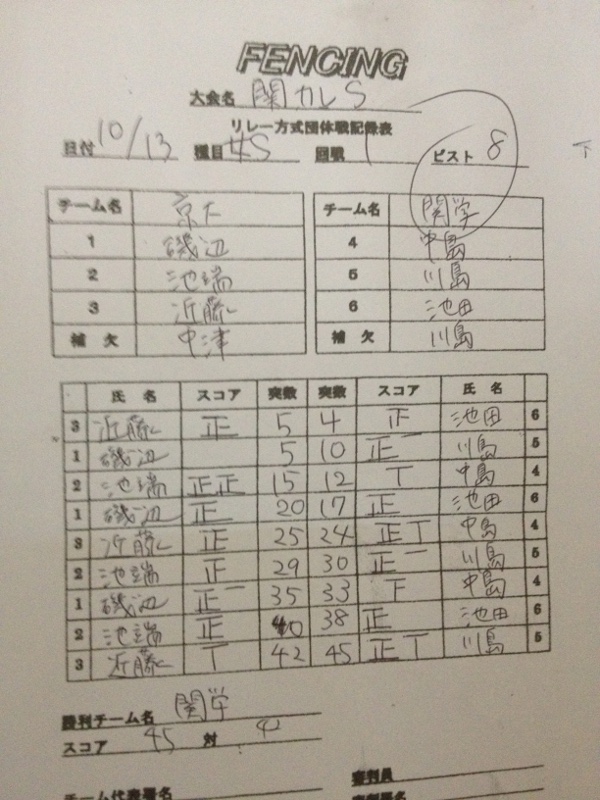 FENCING
大会名 関カレS
リレー方式団体戦記録表
日付 10/13 種目 4S 回戦 1 ピスト 8
下
チーム名 京大 チーム名 関学
1 磯辺 4 中島
2 池端 5 川島
3 近藤 6 池田
補欠 中津 補欠 川島
氏名 スコア 突数 突数 スコア 氏名
3 近藤 正 5 4 正 池田 6
1 磯辺 5 10 正一 川島 5
2 池端 正正 15 12 T 中島 4
1 磯辺 正 20 17 正 池田 6
3 近藤 正 25 24 正T 中島 4
2 池端 正 29 30 正一 川島 5
1 磯辺 正一 35 33 F 中島 4
2 池端 正 40 38 正 池田 6
3 近藤 T 42 45 正T 川島 5
勝利チーム名 関学
スコア 45 対 42
チーム代表署名 審判員
審判署名